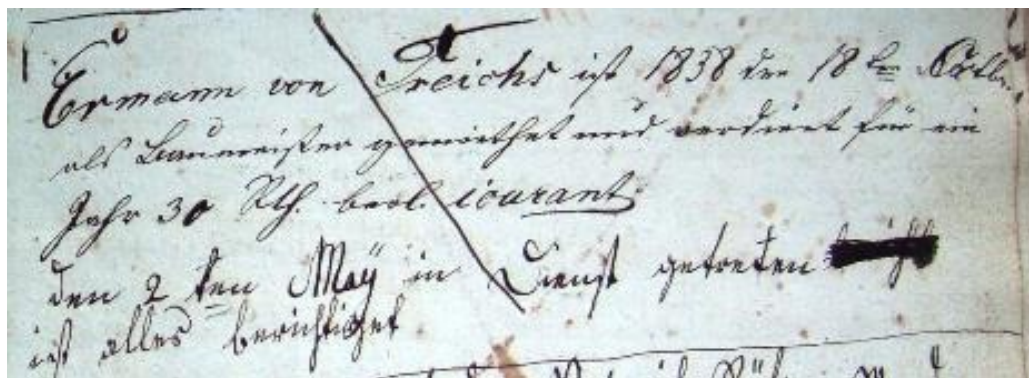 Ermann von Freichs ist 1838 den 18ten Octb.
als Baumeister gemiethet und verdient für ein
Jahr 30 Rth. berl. courant
den 2 ten May in Dienst getreten
ist alles berichtiget